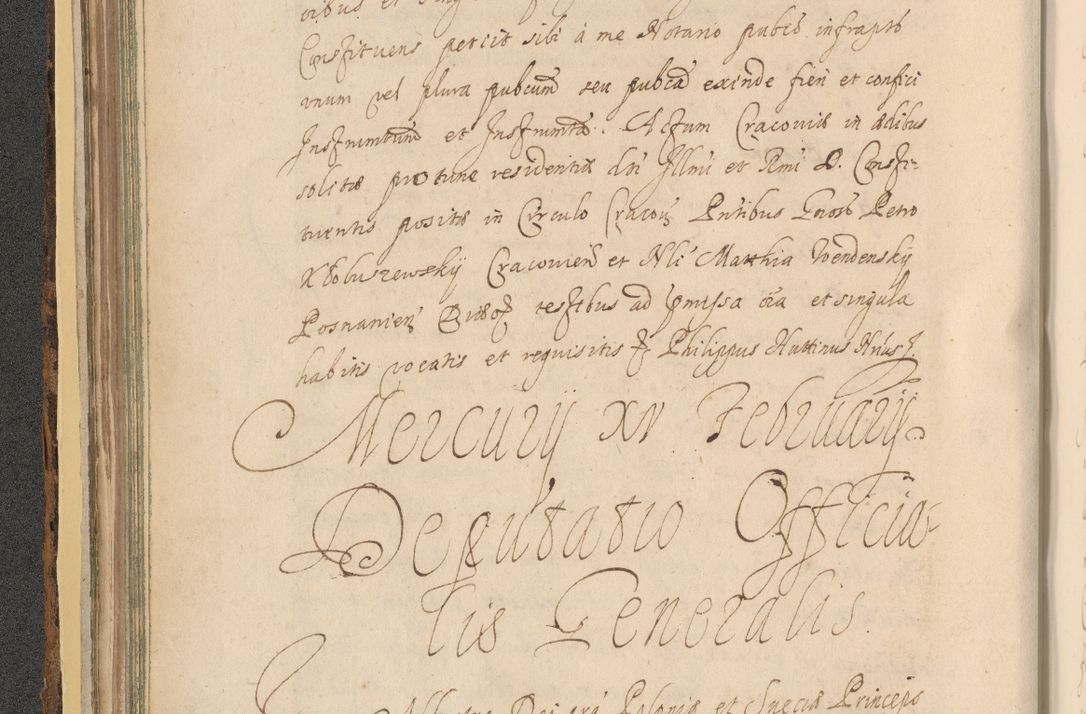 Constituens petiit sibi à me Notario pub͞co infrap͞to
vnum vel plura pub͞cum seu pub͞ca exinde fieri et confici
Instrum͞tum et Instrum͞ta. Actum Cracoviæ in ædibus
solitæ pro tunc residentiæ d͞ti Ill͞mi et R͞mi D. Consti-
tuentis positis in Circulo Cracoui͞ Pn͞tibus Petro
Cracovien͞ et N͞li Matthia Wendensky
Posnanien͞ testibus ad p͞missa o͞ia et singula
habitis vocatis et requisitis Philippus Huttinus N͞rius
Mercurij XV Februarij
Deputatio Officia-
lis Generalis.
Dei gr͞a Poloniæ et Sueciæ Princeps